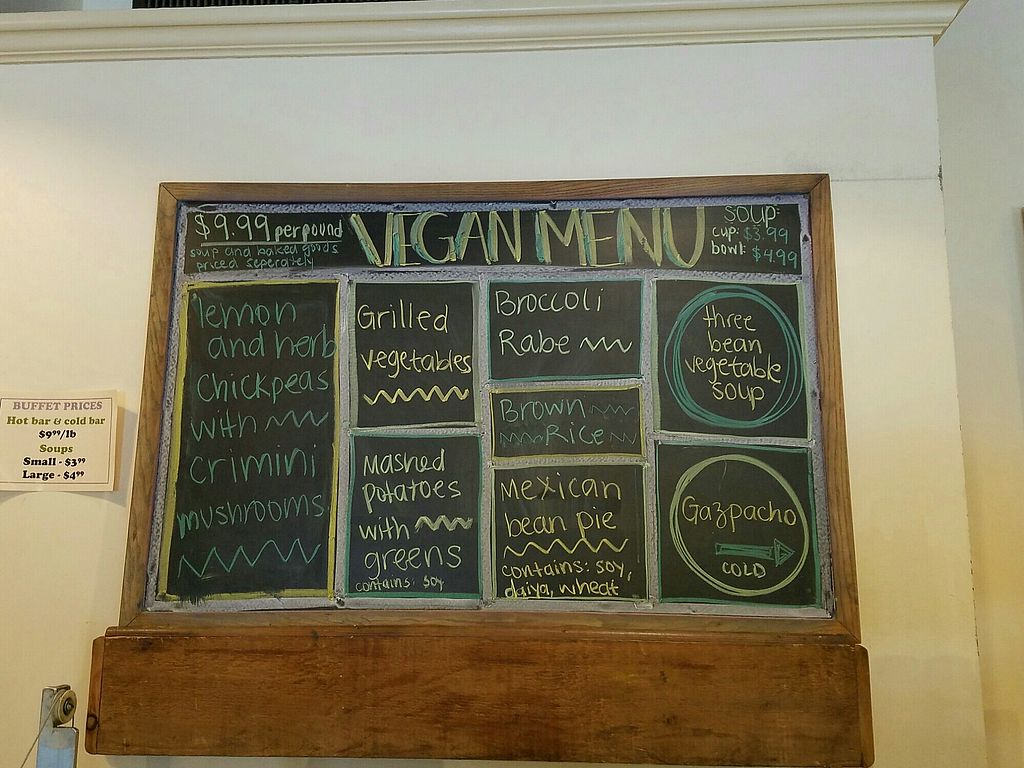 $9.99 per pound
soup and baked goods
priced seperately
VEGAN MENU
SOUP:
cup: $3.99
bowl: $4.99
lemon
and herb
chickpeas
with
crimini
mushrooms
Grilled
vegetables
Mashed
potatoes
with
greens
contains: soy
Broccoli
Rabe
Brown
Rice
Mexican
bean pie
contains: soy,
daiya, wheat
three
bean
vegetable
soup
Gazpacho
COLD
BUFFET PRICES
Hot bar & cold bar
$9⁹⁹/lb
Soups
Small - $3⁹⁹
Large - $4⁹⁹